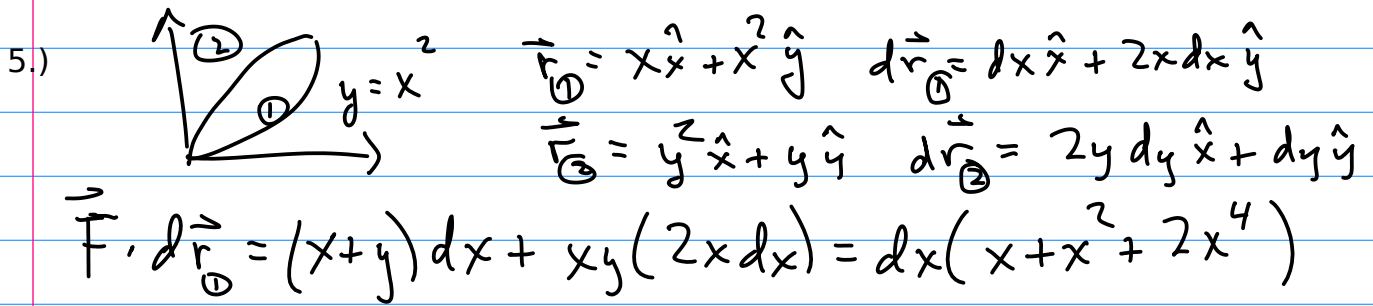 5.) ② ① y = x² r⃗① = x x̂ + x² ŷ dr⃗① = dx x̂ + 2x dx ŷ
r⃗② = y² x̂ + y ŷ dr⃗② = 2y dy x̂ + dy ŷ
F⃗ · dr⃗① = (x+y) dx + xy(2x dx) = dx(x + x² + 2x⁴)